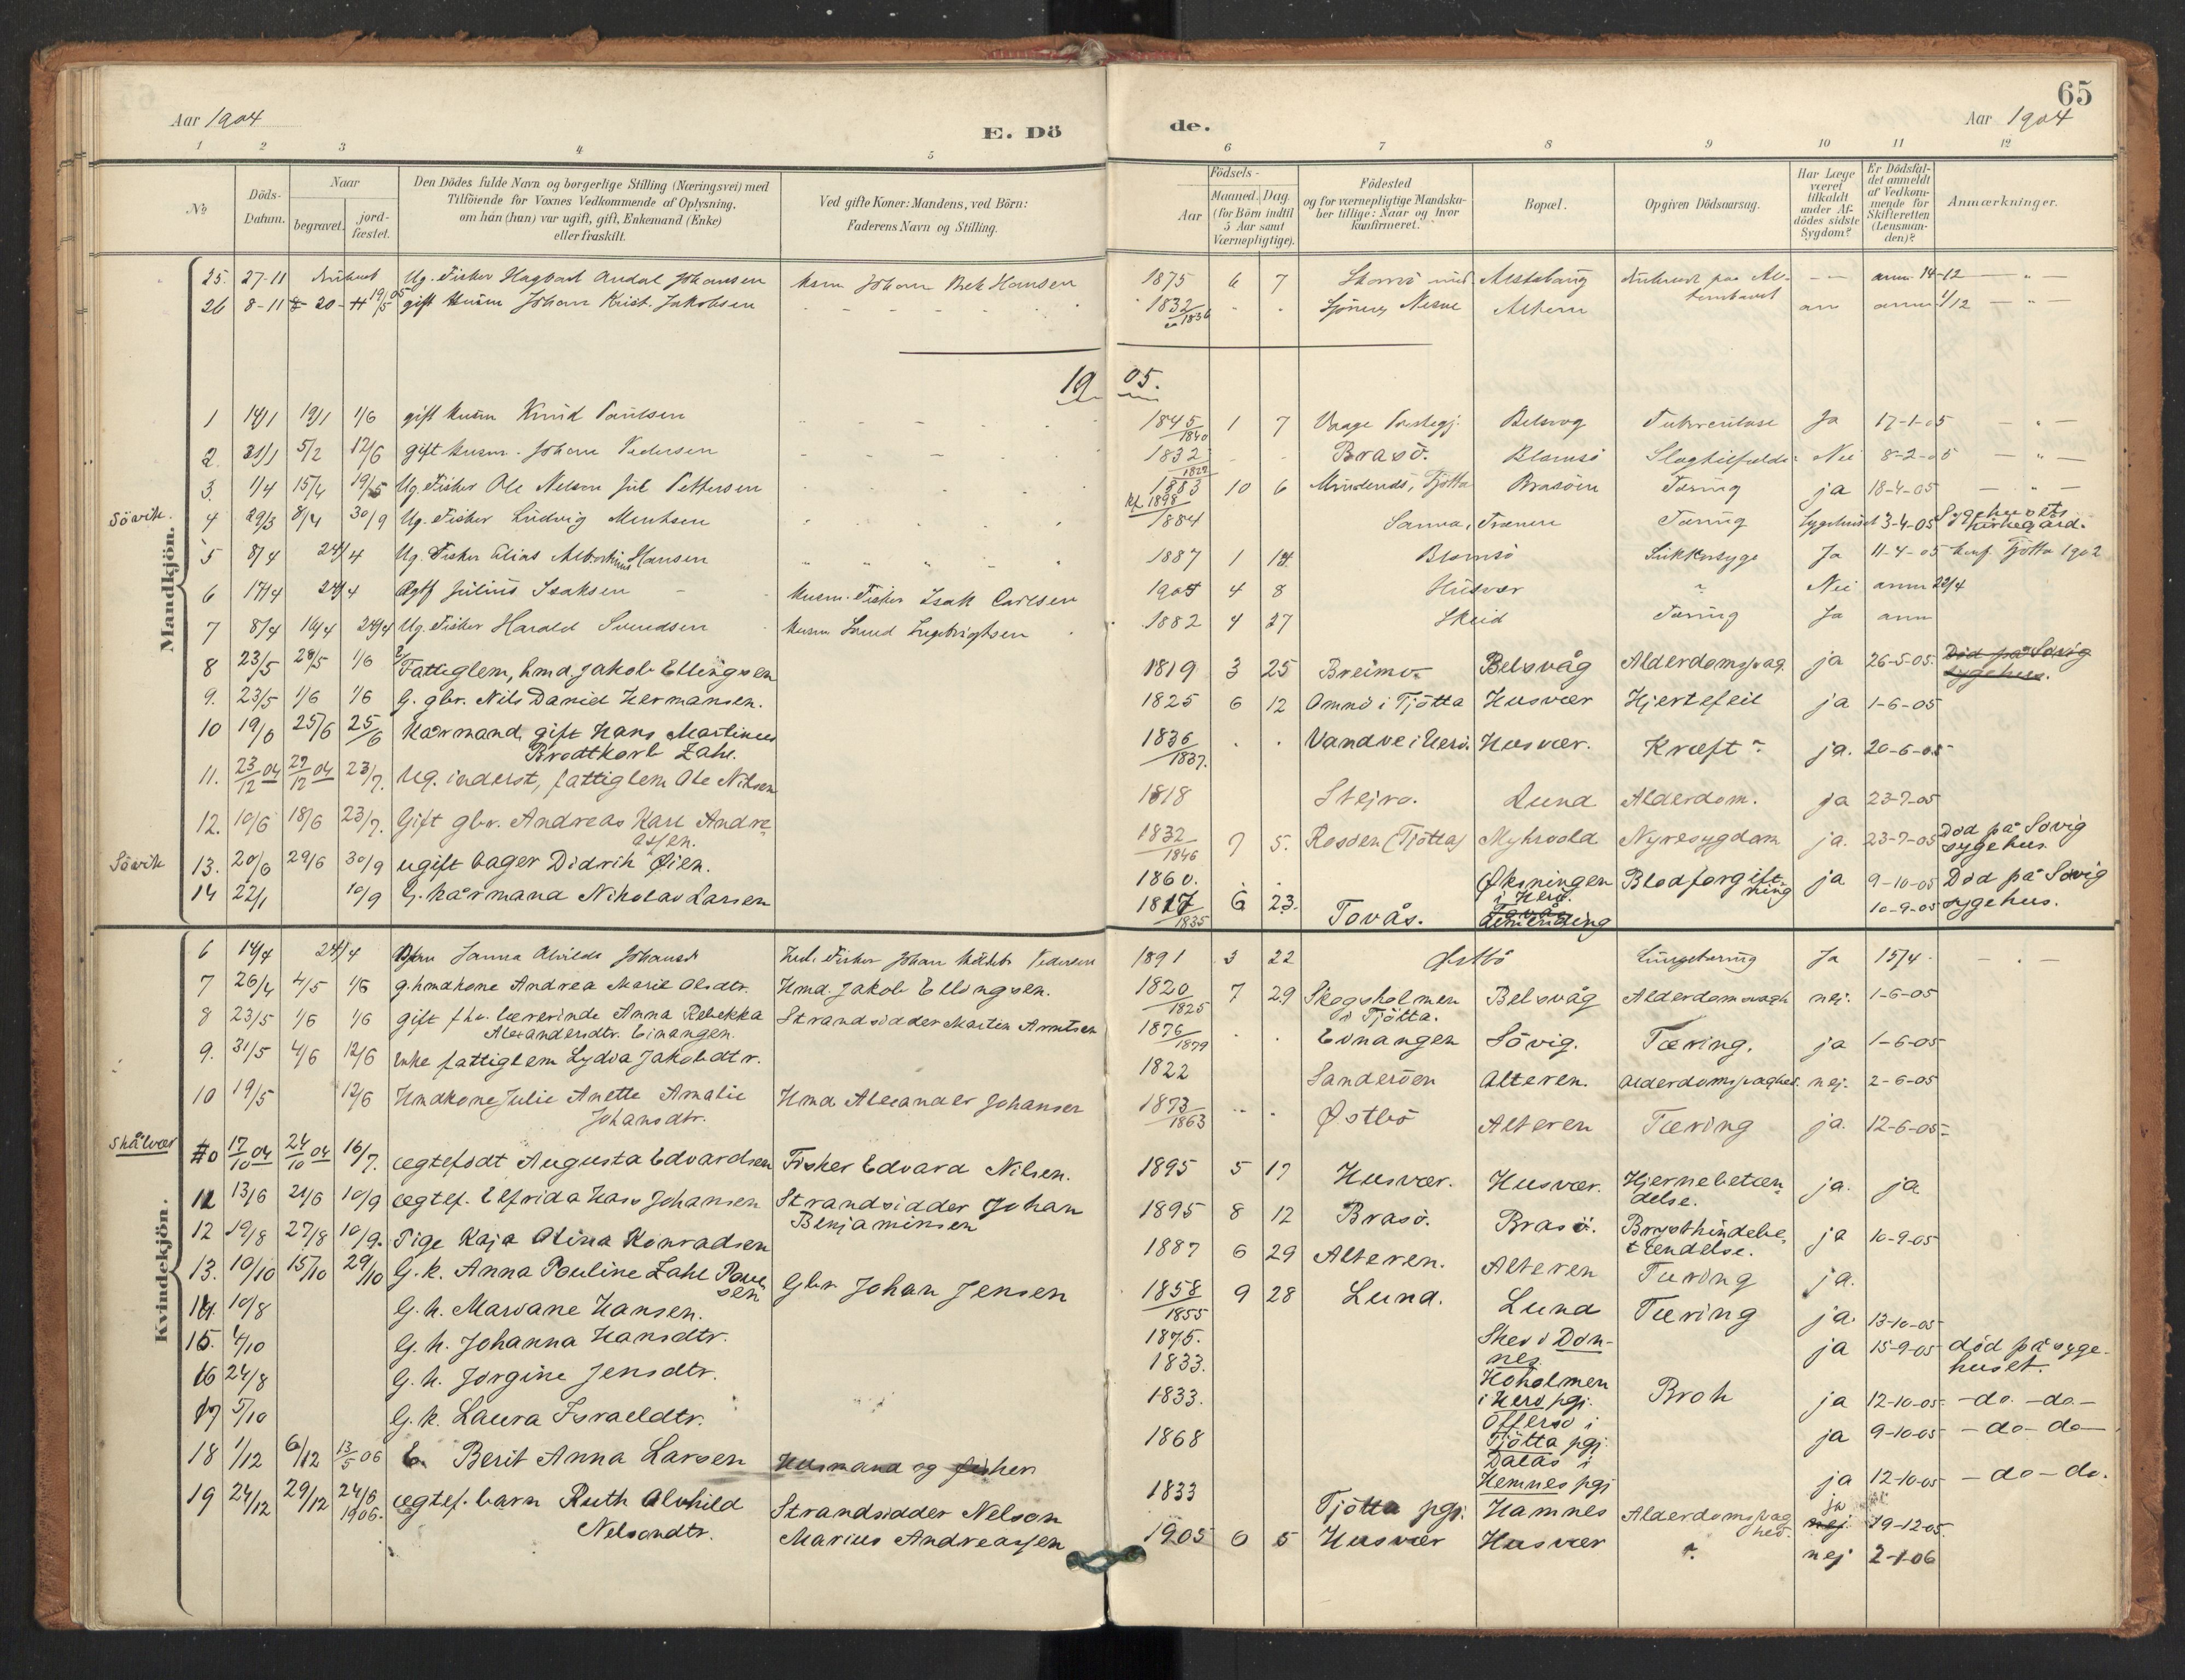 65
Aar 1904
E. Dö
de.
Aar 1904
1 2 3 4 5 6 7 8 9 10 11 12
No
Döds-
Datum.
Naar
begravet.
jord-
fæstet.
Den Dödes fulde Navn og borgerlige Stilling (Næringsvei) med
Tilföiende for Voxnes Vedkommende af Oplysning,
om han (hun) var ugift, gift, Enkemand (Enke)
eller fraskilt.
Ved gifte Koner: Mandens, ved Börn:
Faderens Navn og Stilling.
Födsels-
Aar
Maaned. Dag.
(for Börn indtil
5 Aar samt
Værnepligtige).
Födested
og for værnepligtige Mandska-
ber tillige: Naar og hvor
konfirmeret.
Bopæl.
Opgiven Dödsaarsag.
Har Læge
været
tilkaldt
under Af-
dödes sidste
Sygdom?
Er Dödsfal-
det anmeldt
af Vedkom-
mende for
Skifteretten
(Lensman-
den)?
Anmærkninger.
Mandkjön.
25. 27-11 Ug. Fisker Hagbart Andal Johansen 1875 6 7 anm 14-12
26 8-11 20 19/5 05 gift Husm Johan Krist. Jakobsen 1832 1836 Nesne Alteren anm 1/12
19 05.
1 14/1 19/1 1/6 gift husm Knud Paulsen 1845 1840 1 7 Vaage Præstegj. Belsvog Tuberculose Ja 17-1-05
2. 31/1 5/2 12/6 gift husm. Johan Pedersen 1832 1829 Brasö. Blomsö Slagtilfælde Nei 8-2-05
3. 1/4 15/4 19/5 Ug. Fisker Ole Nelson Jul Pettersen 1883 kf. 1898 10 6 Mindenes, Tjötta Brasöen Tæring ja 18-4-05
Sövik. 4 29/3 8/4 30/9 Ug. Fisker Ludvig 1884 Sanna, Trænen Tæring Sygehuset 3-4-05 Sygehusets kirkegård.
5 8/4 24/4 Ug. Fisker Elias Hansen 1887 1 14. Blomsö Sukkersyge Ja 11-4-05 konf. Tjötta 1902
6 17/4 24/4 Ægtf Julius Isaksen Husm. Fisker Isak Carlsen 1905 4 8 Husvær ? Nei anm 22/4
7 8/4 16/4 24/4 Ug. Fisker Harald Svendsen Husm Ingebrigtsen 1882 4 27 Skeid Tæring Ja anm
8 23/5 28/5 1/6 Fattiglem, hmd. Jakob Ellingsen 1819 3 25 Breimo. Belsvåg Alderdomssvag. ja 26-5-05. Död på Sövig sygehus.
9. 23/5 1/6 1/6 G. gbr. Nils Daniel Hermansen. 1825 6 12 Omnö i Tjötta Husvær Hjertefeil ja 1-6-05
10 19/6 25/6 25/6 Kårmand, gift Hans Martinus
Brodtkorb Zahl. 1836 1837. Vandve i Herö. Husvær. Kræft? ja. 20-6-05
11. 23/12 04 29/12 04 23/7. Ug. inderst, fattiglem Ole Nilsen 1818 Stejro. Lund Alderdom. ja 23-7-05
12. 10/6 18/6 23/7. Gift gbr. Andreas Karl Andre
assen. 1832 1846 7 5. Rosöen (Tjötta) Myhrvold Nyresygdom ja. 23-7-05 Död på Sövig sygehus.
Sövik 13. 20/6 29/6 30/9 ugift bager Didrik Øien. 1860. Øksningen i Herö. Blodforgiftning ja 9-10-05 Död på Sövig sygehus.
14 22/1 10/9 G. kårmand Nikolai Larsen 1817 1835 6 23. Tovås. 10-9-05
Kvindekjön.
6 14/4 24/4 Sanna Alvilda Johansd Fisker Johan Pedersen 1891 3 22 Østbö Lungetæring Ja 15/4
7 26/4 4/5 1/6 g. hmdkone Andrea Marie Olsdtr. Hmd. Jakob Ellingsen. 1820 1825 7 29 Skogsholmen
i Tjötta. Belsvåg Alderdomssvagh nej. 1-6-05
8 23/5 1/6 1/6 gift fhv. lærerinde Anna Rebekka
Alexandersdtr. Einangen. Strandsidder Martin Arntsen 1876 1879 Evnangen Sövig. Tæring. ja 1-6-05
9. 31/5 4/6 12/6 Enke fattiglem Lydia Jakobdtr. 1822 Sanderöen Alteren. Alderdomssvaghed. nej. 2-6-05
10 19/5 12/6 Hmdkone Julie Anette Amalie
Johansdtr. Hmd. Alexander Johansen 1873 1863 Østbö Alteren Tæring ja. 12-6-05
Skålvær 17/10 04 24/10 04 16/7. ægtefödt Augusta Edvardsen Fisker Edvard Nilsen. 1895 5 17 Husvær. Husvær. Hjernebetæn-
delse. ja. ja
11 13/6 21/6 10/9 ægtef. Elfrida Hass Johansen Strandsidder Johan
Benjaminsen 1895 8 12 Brasö. Brasö. Brysthindebe-
tændelse. ja 10-9-05
12 19/8 27/8 10/9. Pige Kaja Olina Konradsen 1887 6 29 Alteren. Alteren Tæring ja.
13. 10/10 15/10 29/10 G. k. Anna Pouline Zahl Poul
sen Gbr Johan Jensen 1858 1855 9 28 Lund. Lund Tæring ja. 13-10-05
14. 10/8 G. k. Marvane Hansen. 1875. Skei i Dön-
nes ja 15-9-05 död på syge-
huset.
15. 4/10 G. k. Johanna Hansdtr. 1833. Hoholmen
i Herö pgj. Brok ja 12-10-05 -do. -do-
16 24/8 G. k. Jorgine Jensdtr. 1833. Offersö i
Tjötta pgj. ja 9-10-05 -do- do-
17 5/10 G. k. Laura Israeldtr. 1868 Dalas i
Hemnes pgj ja 12-10-05 -do-do.
18 1/12 6/12 13/5 06 E. Berit Anna Larsen Husmand og fisker 1833 Tjötta pgj. Hamnes Alderdomssvag
hed. ja nej. 19-12-05.
19 24/12 29/12 24/6 1906. ægtef. barn Ruth Alvhild
Nelsondtr. Strandsidder Nelson
Marius Andreassen 1905 6 5 Husvær Husvær ?. nej 2-1-06